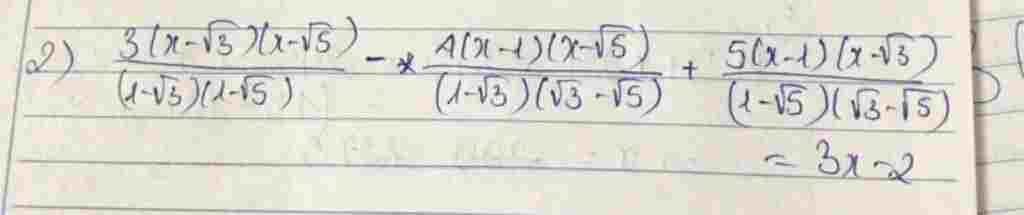 2) 3(x-√3)(x-√5)/(1-√3)(1-√5) - 4(x-1)(x-√5)/(1-√3)(√3-√5) + 5(x-1)(x-√3)/(1-√5)(√3-√5)
= 3x-2